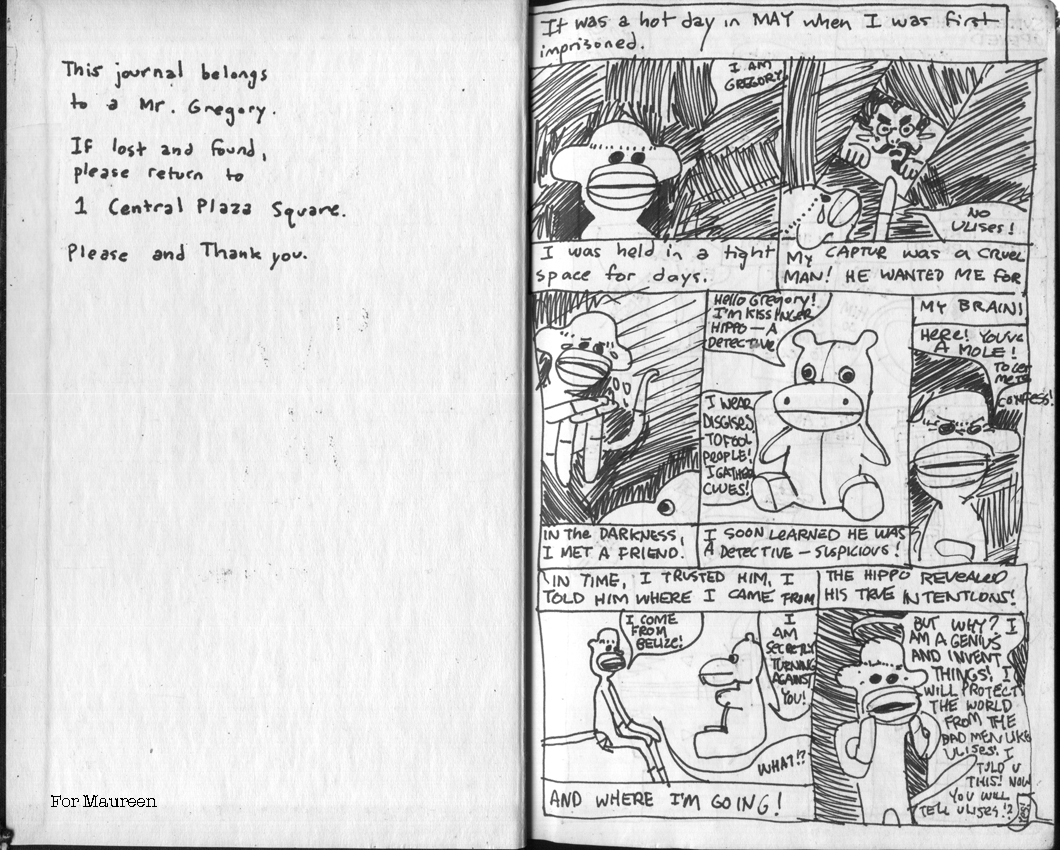 This journal belongs
to a Mr. Gregory.
If lost and found,
please return to
1 Central Plaza Square.
Please and Thank you.
For Maureen
It was a hot day in MAY when I was first
imprisoned.
I AM
GREGORY
NO
ULISES!
I was held in a tight
space for days.
My CAPTUR was a CRUEL
MAN! HE WANTED ME FOR
Hello Gregory!
I'M KISSINGER
HIPPO — A
DETECTIVE
I WEAR
DISGISES
TO FOOL
PEOPLE!
I GATHER
CLUES!
MY BRAIN!
HERE! YOU'VE
A MOLE!
TO GET
ME TO
CONFESS!
IN the DARKNESS,
I MET A FRIEND.
I SOON LEARNED HE WAS
A DETECTIVE — SUSPICIOUS!
IN TIME, I TRUSTED HIM, I
TOLD HIM WHERE I CAME FROM
THE HIPPO REVEALED
HIS TRUE INTENTIONS!
I COME
FROM
BELIZE!
I
AM
SECRETLY
TURNING
AGAINST
YOU!
WHAT!?
AND WHERE I'M GOING!
BUT WHY? I
AM A GENIUS
AND INVENT
THINGS! I
WILL PROTECT
THE WORLD
FROM THE
BAD MEN LIKE
ULISES! I
TOLD U
THIS! NOW
YOU WILL
TELL ULISES!?